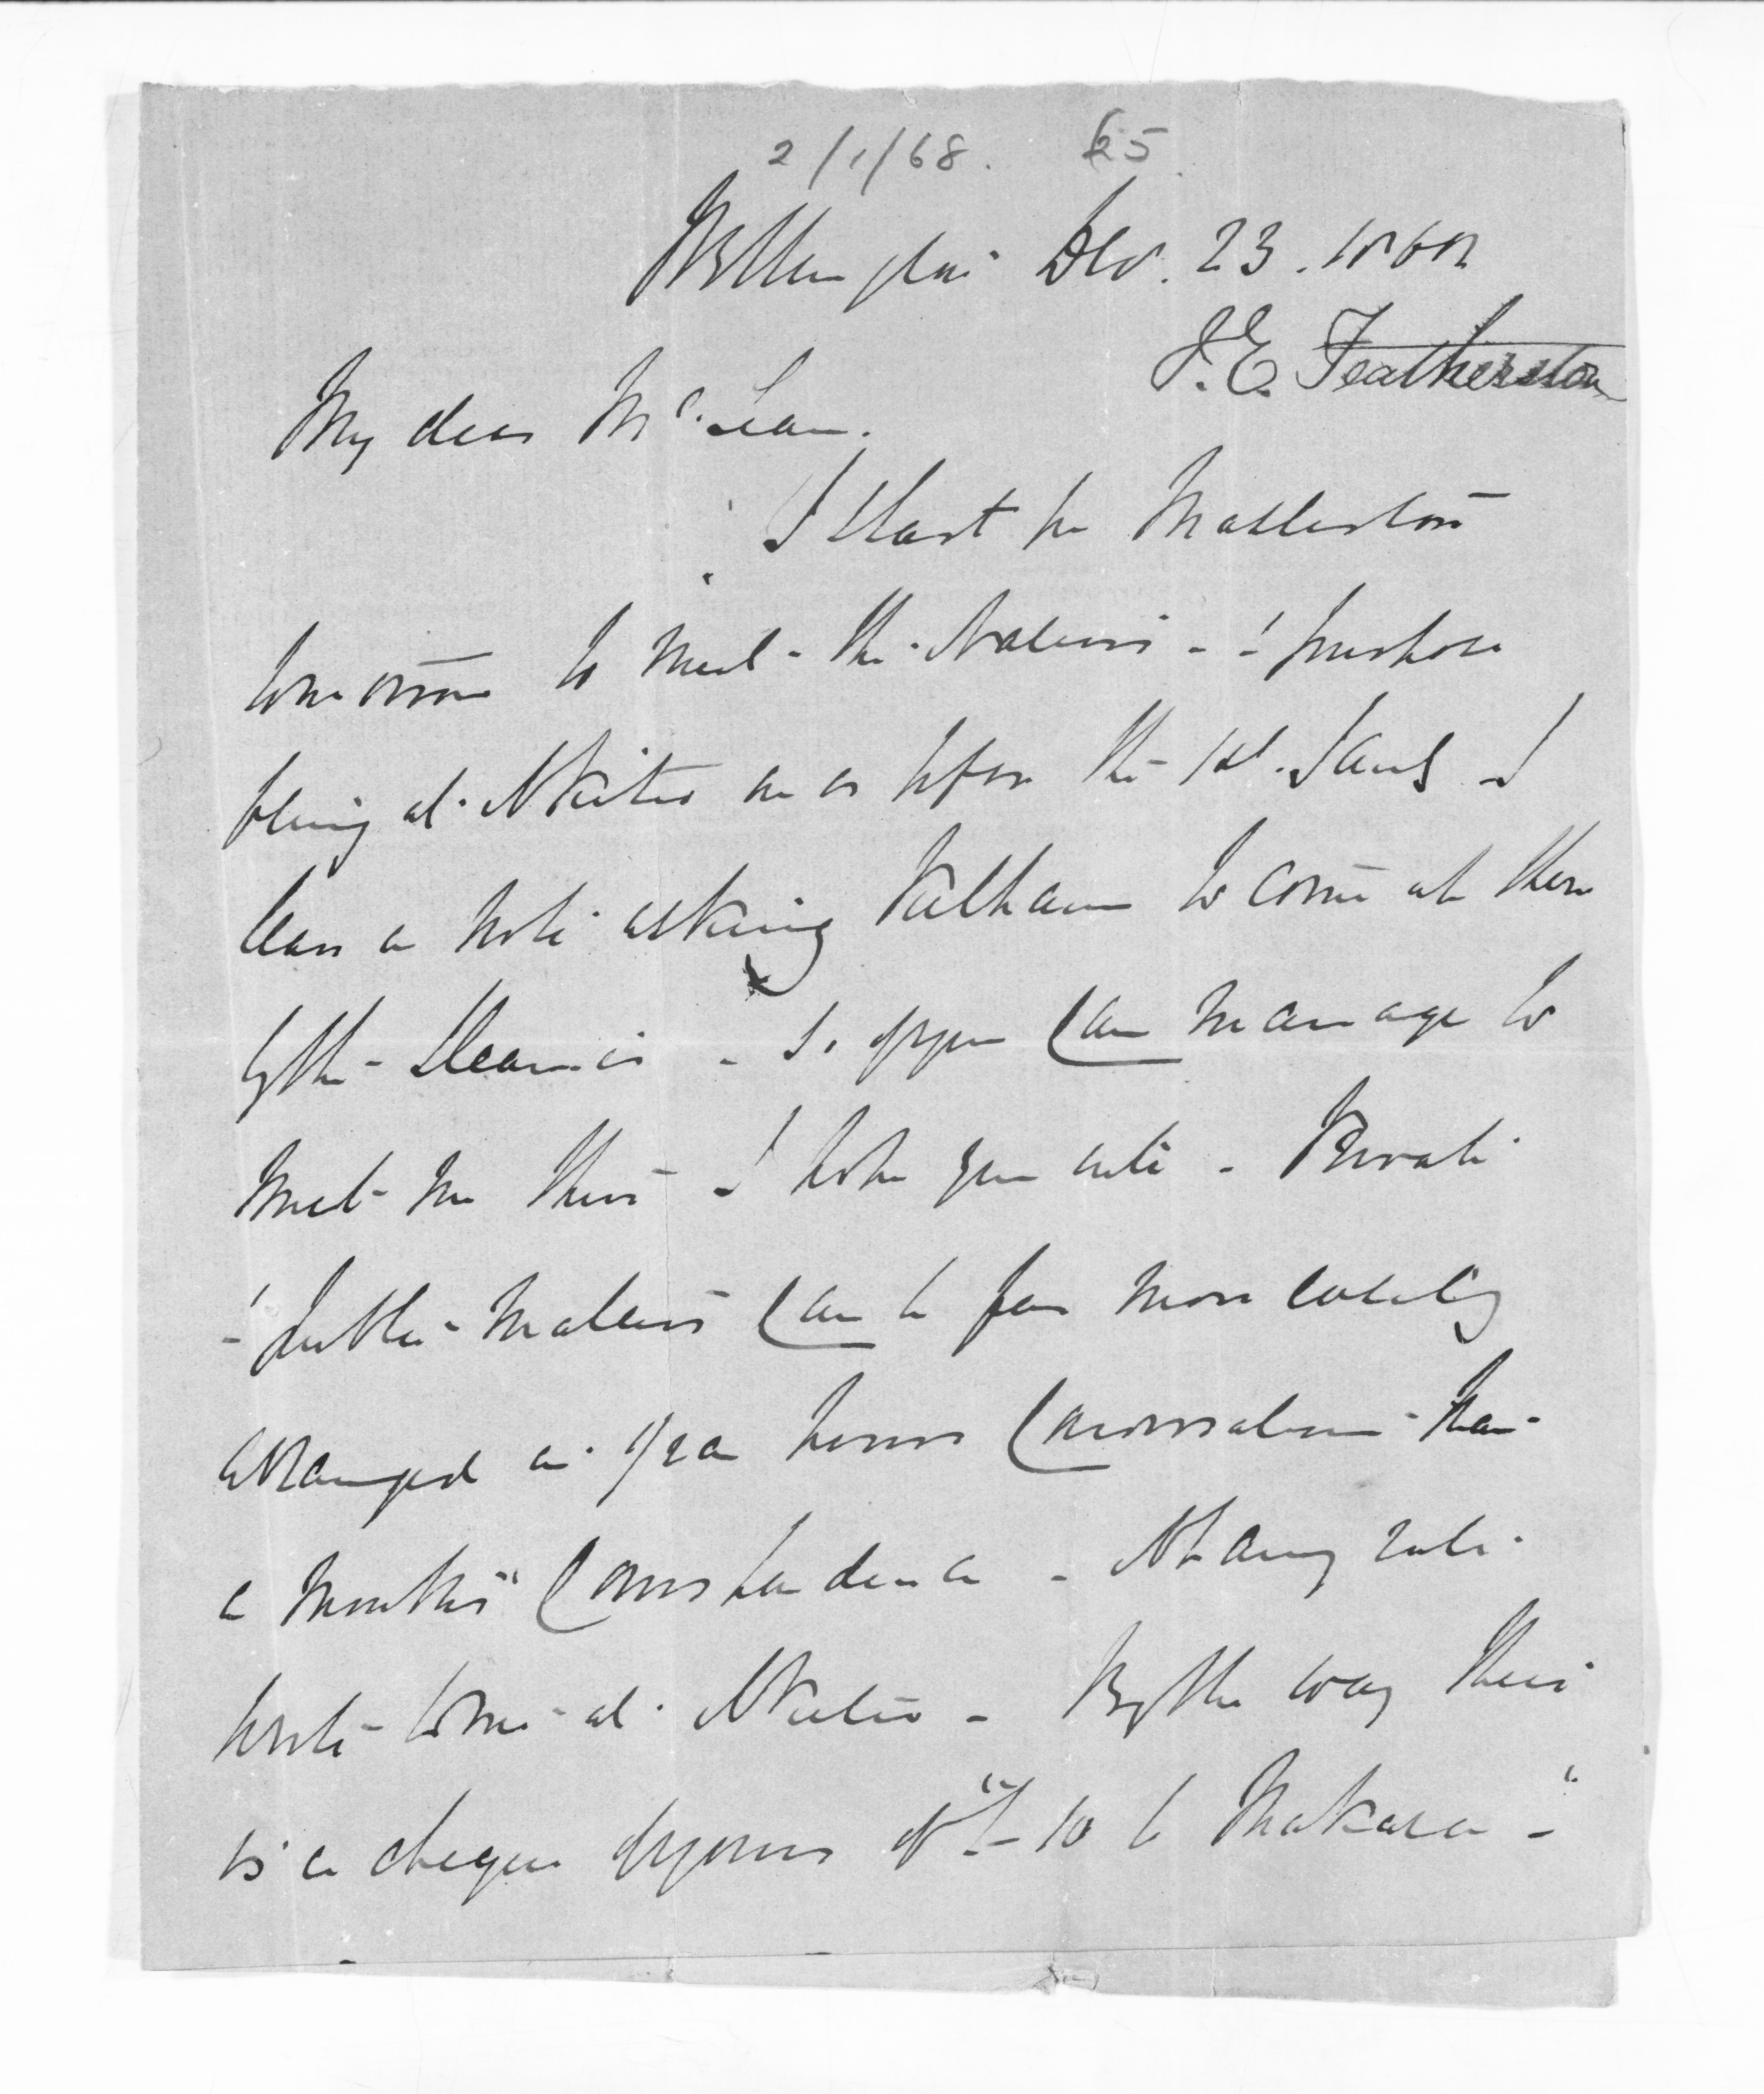 2/1/68. 25
Wellington Dec. 23. 1868
I. E. Featherston
My dear McLean.
I start for Masterton
tomorrow to meet the Natives - I purpose
being at Napier on or before the 1st. Jany I
leave a note asking to come up there
by the Steamer - So if you can manage to
meet me there I hope you will - Private
& Public matters can be far more easily
arranged in 1/2 an hours conversation than
a months correspondence - At any rate
write to me at Napier - By the way there
is a cheque of yours of "£10 to Makara - "